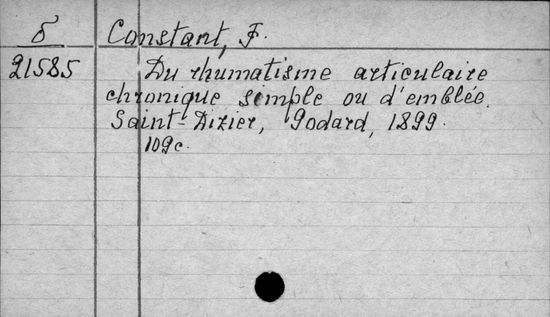 б Constant, F.
21585 Du rhumatisme articulaire
chronique simple ou d'emblée.
Saint-Dizier, Godard, 1899.
109c.